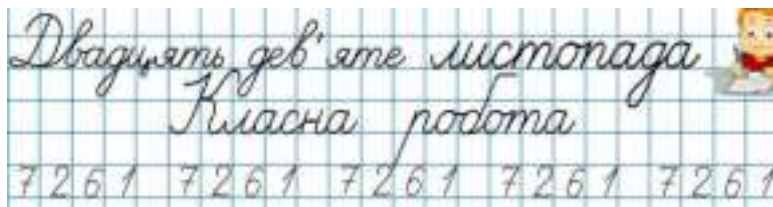 Двадцять дев'яте листопада
Класна робота
7261 7261 7261 7261 7261